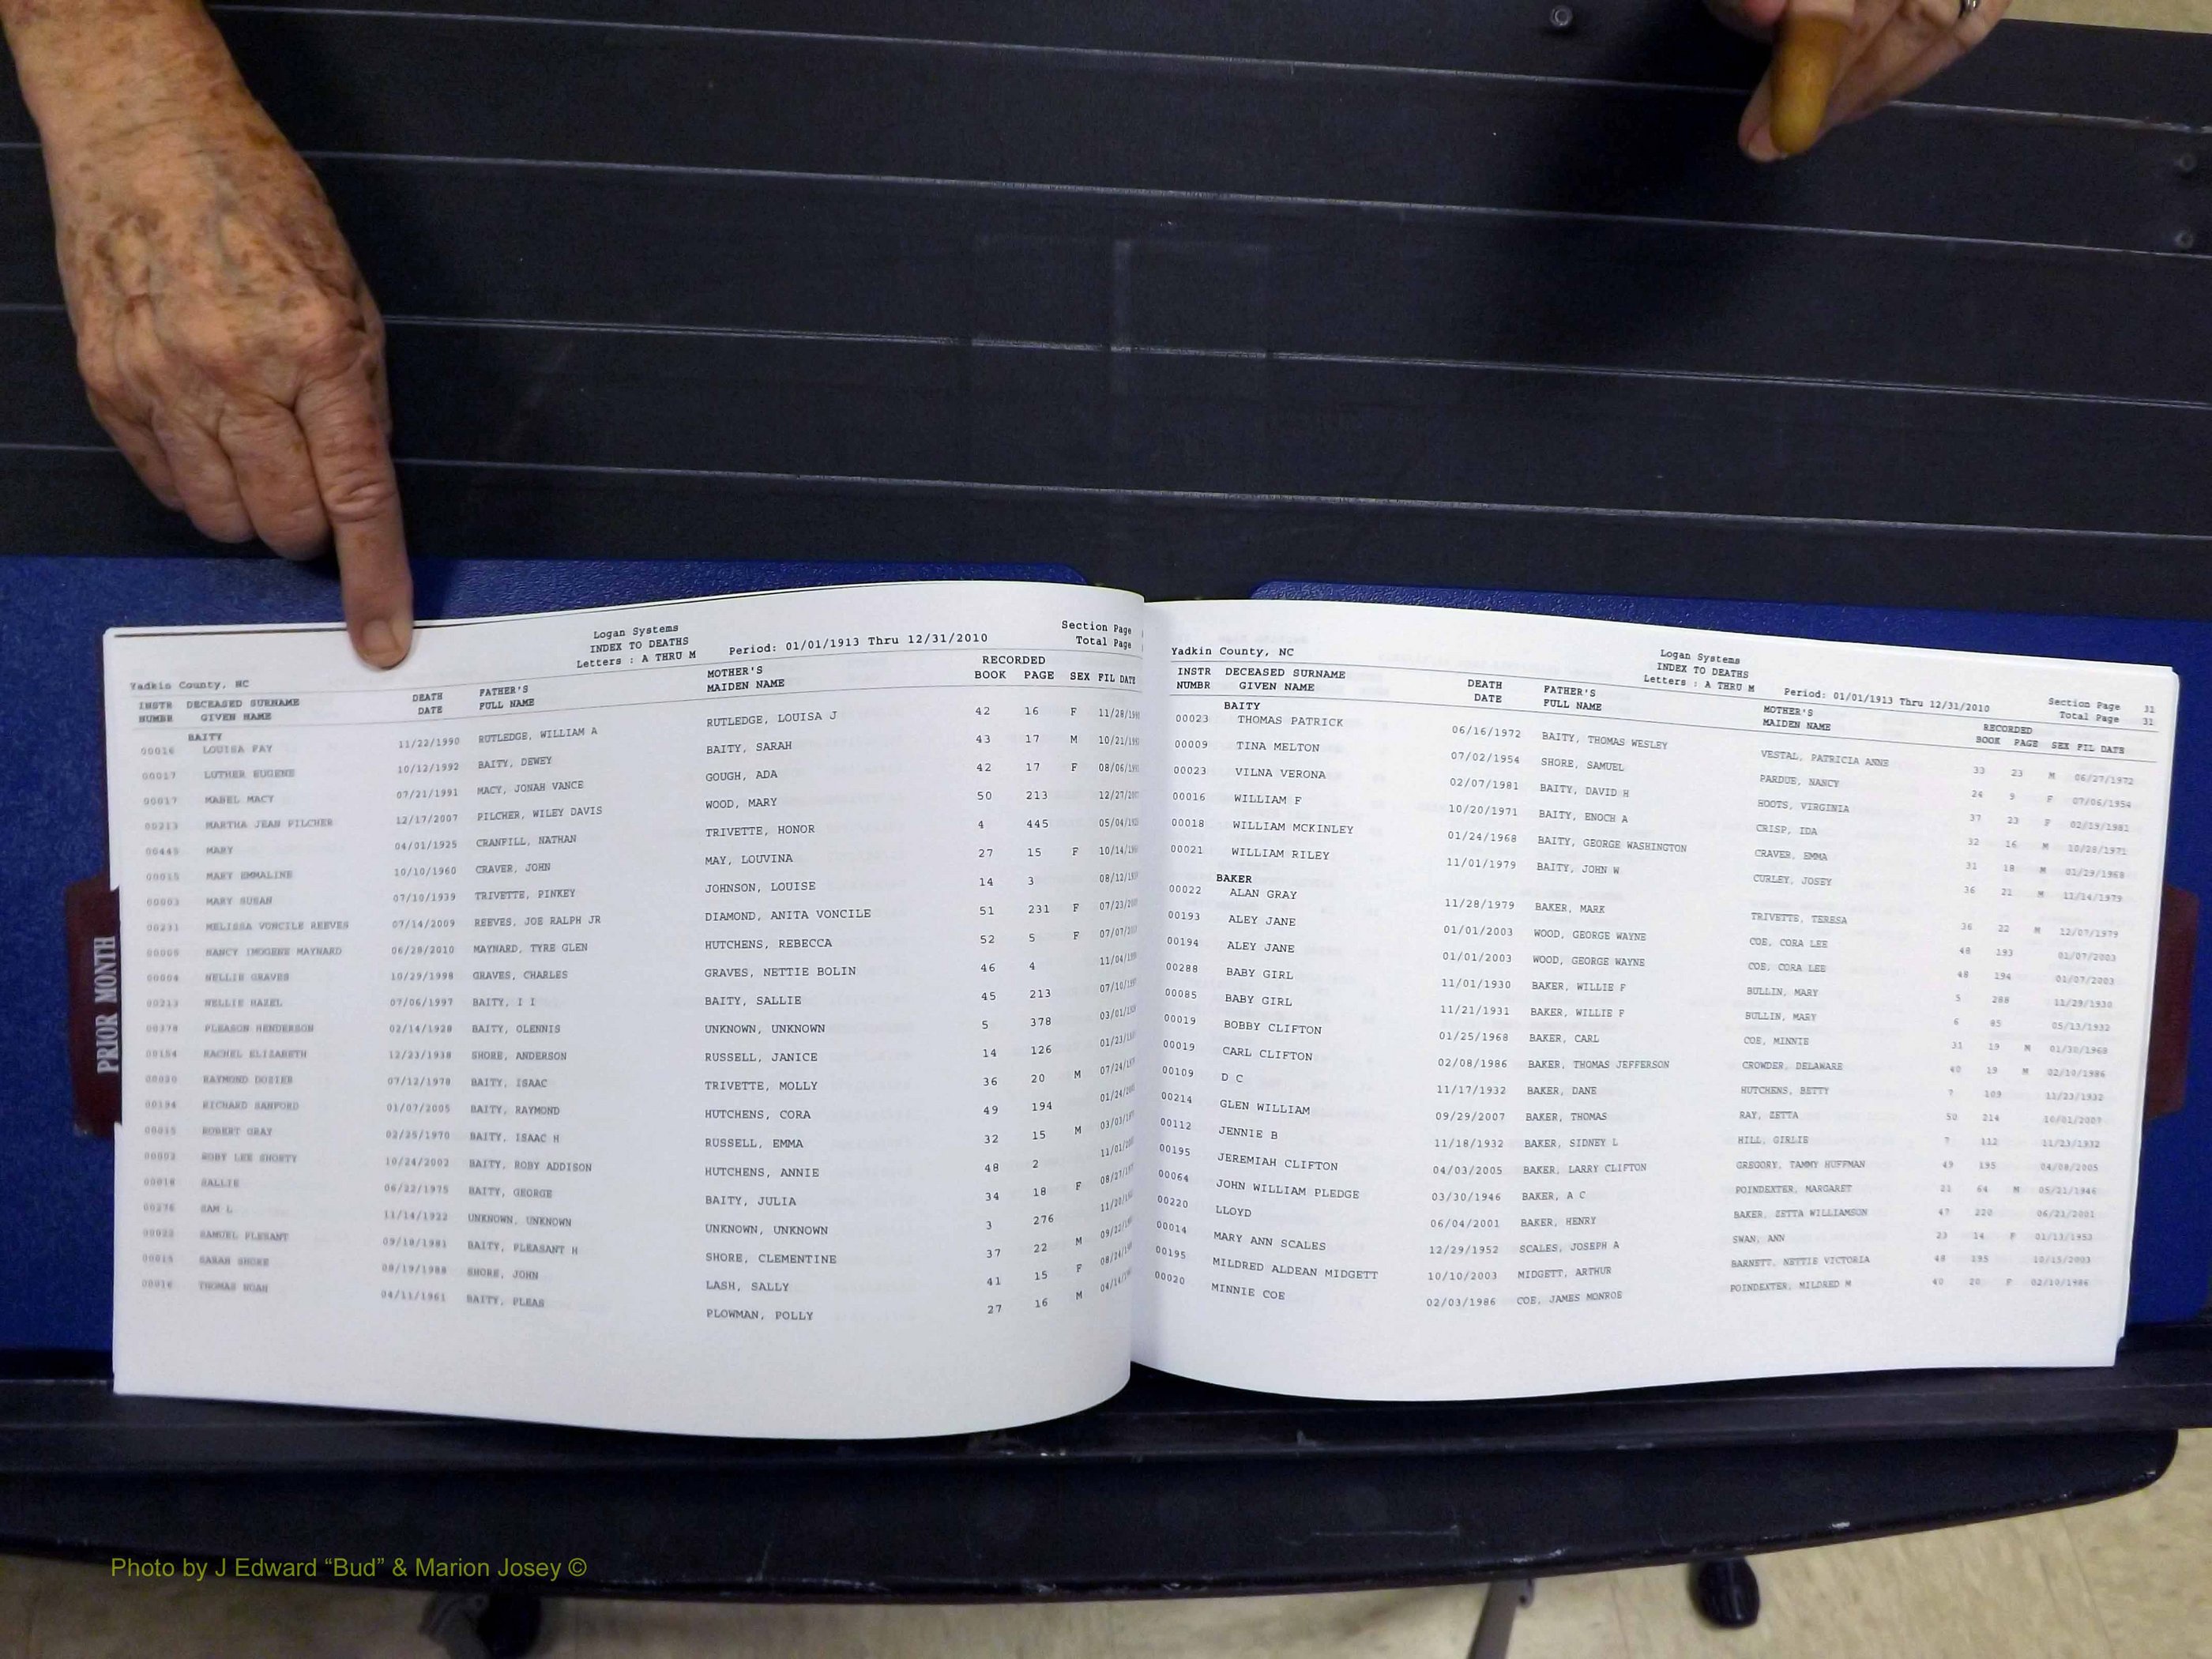 Logan Systems
INDEX TO DEATHS
Letters : A THRU M Period: 01/01/1913 Thru 12/31/2010
Section Page
Total Page
Yadkin County, NC
INSTR DECEASED SURNAME DEATH FATHER'S MOTHER'S RECORDED
NUMBR GIVEN NAME DATE FULL NAME MAIDEN NAME BOOK PAGE SEX FIL DATE
BAITY
00016 LOUISA FAY 11/22/1990 RUTLEDGE, WILLIAM A RUTLEDGE, LOUISA J 42 16 F
00017 LUTHER EUGENE 10/12/1992 BAITY, DEWEY BAITY, SARAH 43 17 M
00017 MABEL MACY 07/21/1991 MACY, JONAH VANCE GOUGH, ADA 42 17 F
00213 MARTHA JEAN PILCHER 12/17/2007 PILCHER, WILEY DAVIS WOOD, MARY 50 213
00445 MARY 04/01/1925 CRANFILL, NATHAN TRIVETTE, HONOR 4 445
00015 MARY EMMALINE 10/10/1960 CRAVER, JOHN MAY, LOUVINA 27 15 F
00003 MARY SUSAN 07/10/1939 TRIVETTE, PINKEY JOHNSON, LOUISE 14 3
00231 MELISSA VONCILE REEVES 07/14/2009 REEVES, JOE RALPH JR DIAMOND, ANITA VONCILE 51 231 F
00005 NANCY IMOGENE MAYNARD 06/28/2010 MAYNARD, TYRE GLEN HUTCHENS, REBECCA 52 5 F
00004 NELLIE GRAVES 10/29/1998 GRAVES, CHARLES GRAVES, NETTIE BOLIN 46 4
00213 NELLIE HAZEL 07/06/1997 BAITY, I I BAITY, SALLIE 45 213
00378 PLEASON HENDERSON 02/14/1928 BAITY, OLENNIS UNKNOWN, UNKNOWN 5 378
RACHEL ELIZABETH 12/23/1938 SHORE, ANDERSON RUSSELL, JANICE 14 126
00020 RAYMOND DOZIER 07/12/1978 BAITY, ISAAC TRIVETTE, MOLLY 36 20 M
00194 RICHARD SANFORD 01/07/2005 BAITY, RAYMOND HUTCHENS, CORA 49 194
00015 ROBERT GRAY 02/25/1970 BAITY, ISAAC H RUSSELL, EMMA 32 15 M
00002 ROBY LEE SHORTY 10/24/2002 BAITY, ROBY ADDISON HUTCHENS, ANNIE 48 2
00018 SALLIE 06/22/1975 BAITY, GEORGE BAITY, JULIA 34 18 F
00276 SAM L 11/14/1922 UNKNOWN, UNKNOWN UNKNOWN, UNKNOWN 3 276
00022 SAMUEL PLESANT 09/18/1981 BAITY, PLEASANT H SHORE, CLEMENTINE 37 22 M
00015 SARAH SHORE 08/19/1988 SHORE, JOHN LASH, SALLY 41 15 F
00016 THOMAS NOAH 04/11/1961 BAITY, PLEAS PLOWMAN, POLLY 27 16 M
PRIOR MONTH
Logan Systems
INDEX TO DEATHS
Letters : A THRU M Period: 01/01/1913 Thru 12/31/2010
Section Page 31
Total Page 31
Yadkin County, NC
INSTR DECEASED SURNAME DEATH FATHER'S MOTHER'S RECORDED
NUMBR GIVEN NAME DATE FULL NAME MAIDEN NAME BOOK PAGE SEX FIL DATE
BAITY
00023 THOMAS PATRICK 06/16/1972 BAITY, THOMAS WESLEY VESTAL, PATRICIA ANNE 33 23 M 06/27/1972
00009 TINA MELTON 07/02/1954 SHORE, SAMUEL PARDUE, NANCY 24 9 F 07/06/1954
00023 VILNA VERONA 02/07/1981 BAITY, DAVID H HOOTS, VIRGINIA 37 23 F 02/19/1981
00016 WILLIAM F 10/20/1971 BAITY, ENOCH A CRISP, IDA 32 16 M 10/28/1971
00018 WILLIAM MCKINLEY 01/24/1968 BAITY, GEORGE WASHINGTON CRAVER, EMMA 31 18 M 01/29/1968
00021 WILLIAM RILEY 11/01/1979 BAITY, JOHN W CURLEY, JOSEY 36 21 M 11/14/1979
BAKER
00022 ALAN GRAY 11/28/1979 BAKER, MARK TRIVETTE, TERESA 36 22 M 12/07/1979
00193 ALEY JANE 01/01/2003 WOOD, GEORGE WAYNE COE, CORA LEE 48 193 01/07/2003
00194 ALEY JANE 01/01/2003 WOOD, GEORGE WAYNE COE, CORA LEE 48 194 01/07/2003
00288 BABY GIRL 11/01/1930 BAKER, WILLIE F BULLIN, MARY 5 288 11/29/1930
00085 BABY GIRL 11/21/1931 BAKER, WILLIE F BULLIN, MARY 6 85 05/13/1932
00019 BOBBY CLIFTON 01/25/1968 BAKER, CARL COE, MINNIE 31 19 M 01/30/1968
00019 CARL CLIFTON 02/08/1986 BAKER, THOMAS JEFFERSON CROWDER, DELAWARE 40 19 M 02/10/1986
00109 D C 11/17/1932 BAKER, DANE HUTCHENS, BETTY 7 109 11/23/1932
00214 GLEN WILLIAM 09/29/2007 BAKER, THOMAS RAY, ZETTA 50 214 10/01/2007
00112 JENNIE B 11/18/1932 BAKER, SIDNEY L HILL, GIRLIE 7 112 11/23/1932
00195 JEREMIAH CLIFTON 04/03/2005 BAKER, LARRY CLIFTON GREGORY, TAMMY HUFFMAN 49 195 04/08/2005
00064 JOHN WILLIAM PLEDGE 03/30/1946 BAKER, A C POINDEXTER, MARGARET 21 64 M 05/21/1946
00220 LLOYD 06/04/2001 BAKER, HENRY BAKER, ZETTA WILLIAMSON 47 220 06/21/2001
00014 MARY ANN SCALES 12/29/1952 SCALES, JOSEPH A SWAN, ANN 23 14 F 01/13/1953
00195 MILDRED ALDEAN MIDGETT 10/10/2003 MIDGETT, ARTHUR BARNETT, NETTIE VICTORIA 48 195 10/13/2003
00020 MINNIE COE 02/03/1986 COE, JAMES MONROE POINDEXTER, MILDRED M 40 20 F 02/10/1986
Photo by J Edward “Bud” & Marion Josey ©